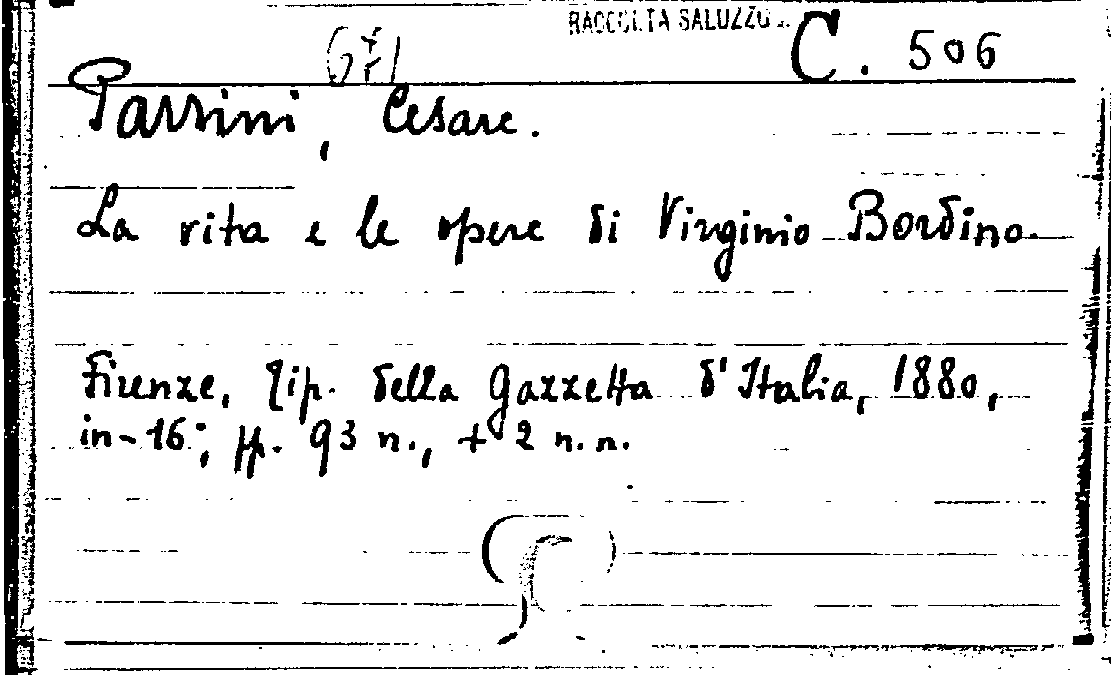 RACCOLTA SALUZZO
C. 506
Parrini, Cesare.
La vita e le opere di Virginio Bordino.
Firenze, Tip. della Gazzetta d'Italia, 1880,
in-16°; pp. 93 n., + 2 n.n.